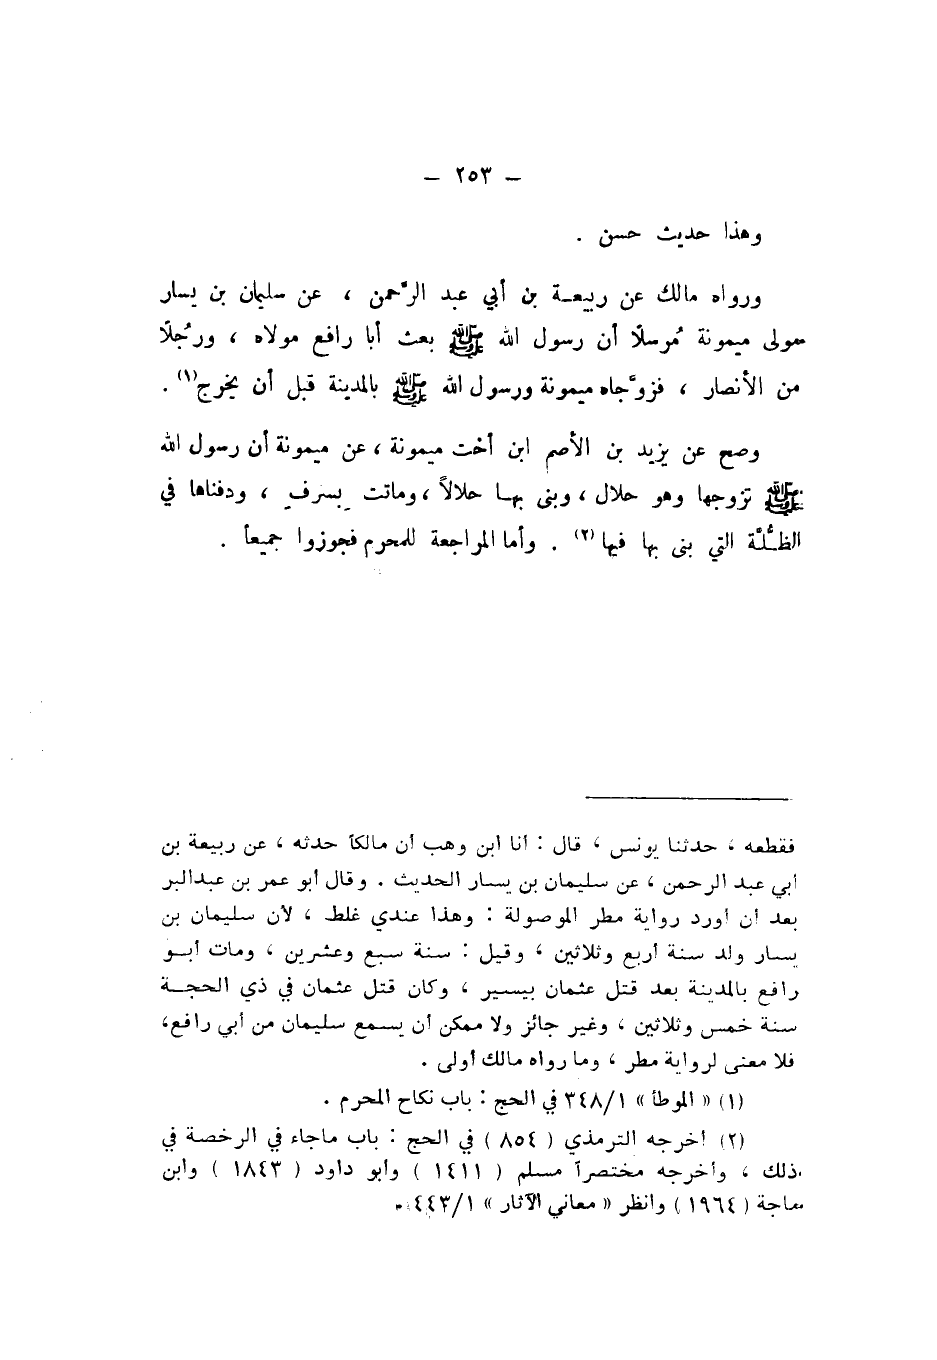 – ٢٥٣ –
وهذا حديث حسن .
ورواه مالك عن ربيعـة بن أبي عبد الرَّحمن ، عن سليمان بن يسار
مولى ميمونة مُرسلًا أن رسول الله ﷺ بعث أبا رافع مولاه ، ورجُلًا
من الأنصار ، فزوَّجاه ميمونة ورسول الله ﷺ بالمدينة قبل أن يخرج(١) .
وصح عن يزيد بن الأصم ابن أخت ميمونة ، عن ميمونة أن رسول الله
ﷺ تزوجها وهو حلال ، وبنى بهـا حلالاً ، وماتت بِسرفٍ ، ودفناها في
الظُّلَّة التي بنى بها فيها (٢) . وأما المراجعة للمحرم فجوزوا جميعاً .
فقطعه ، حدثنا يونس ، قال : أنا ابن وهب أن مالكاً حدثه ، عن ربيعة بن
أبي عبد الرحمن ، عن سليمان بن يسار الحديث . وقال أبو عمر بن عبدالبر
بعد أن أورد رواية مطر الموصولة : وهذا عندي غلط ، لأن سليمان بن
يسار ولد سنة أربع وثلاثين ، وقيل : سنة سبع وعشرين ، ومات أبـو
رافع بالمدينة بعد قتل عثمان بيسير ، وكان قتل عثمان في ذي الحجـة
سنة خمس وثلاثين ، وغير جائز ولا ممكن أن يسمع سليمان من أبي رافع،
فلا معنى لرواية مطر ، وما رواه مالك أولى .
(١) « الموطأ » ٣٤٨/١ في الحج : باب نكاح المحرم .
(٢) أخرجه الترمذي ( ٨٥٤ ) في الحج : باب ماجاء في الرخصة في
ذلك ، وأخرجه مختصراً مسلم ( ١٤١١ ) وأبو داود ( ١٨٤٣ ) وابن
ماجة ( ١٩٦٤ ) وانظر « معاني الآثار » ٤٤٣/١ .